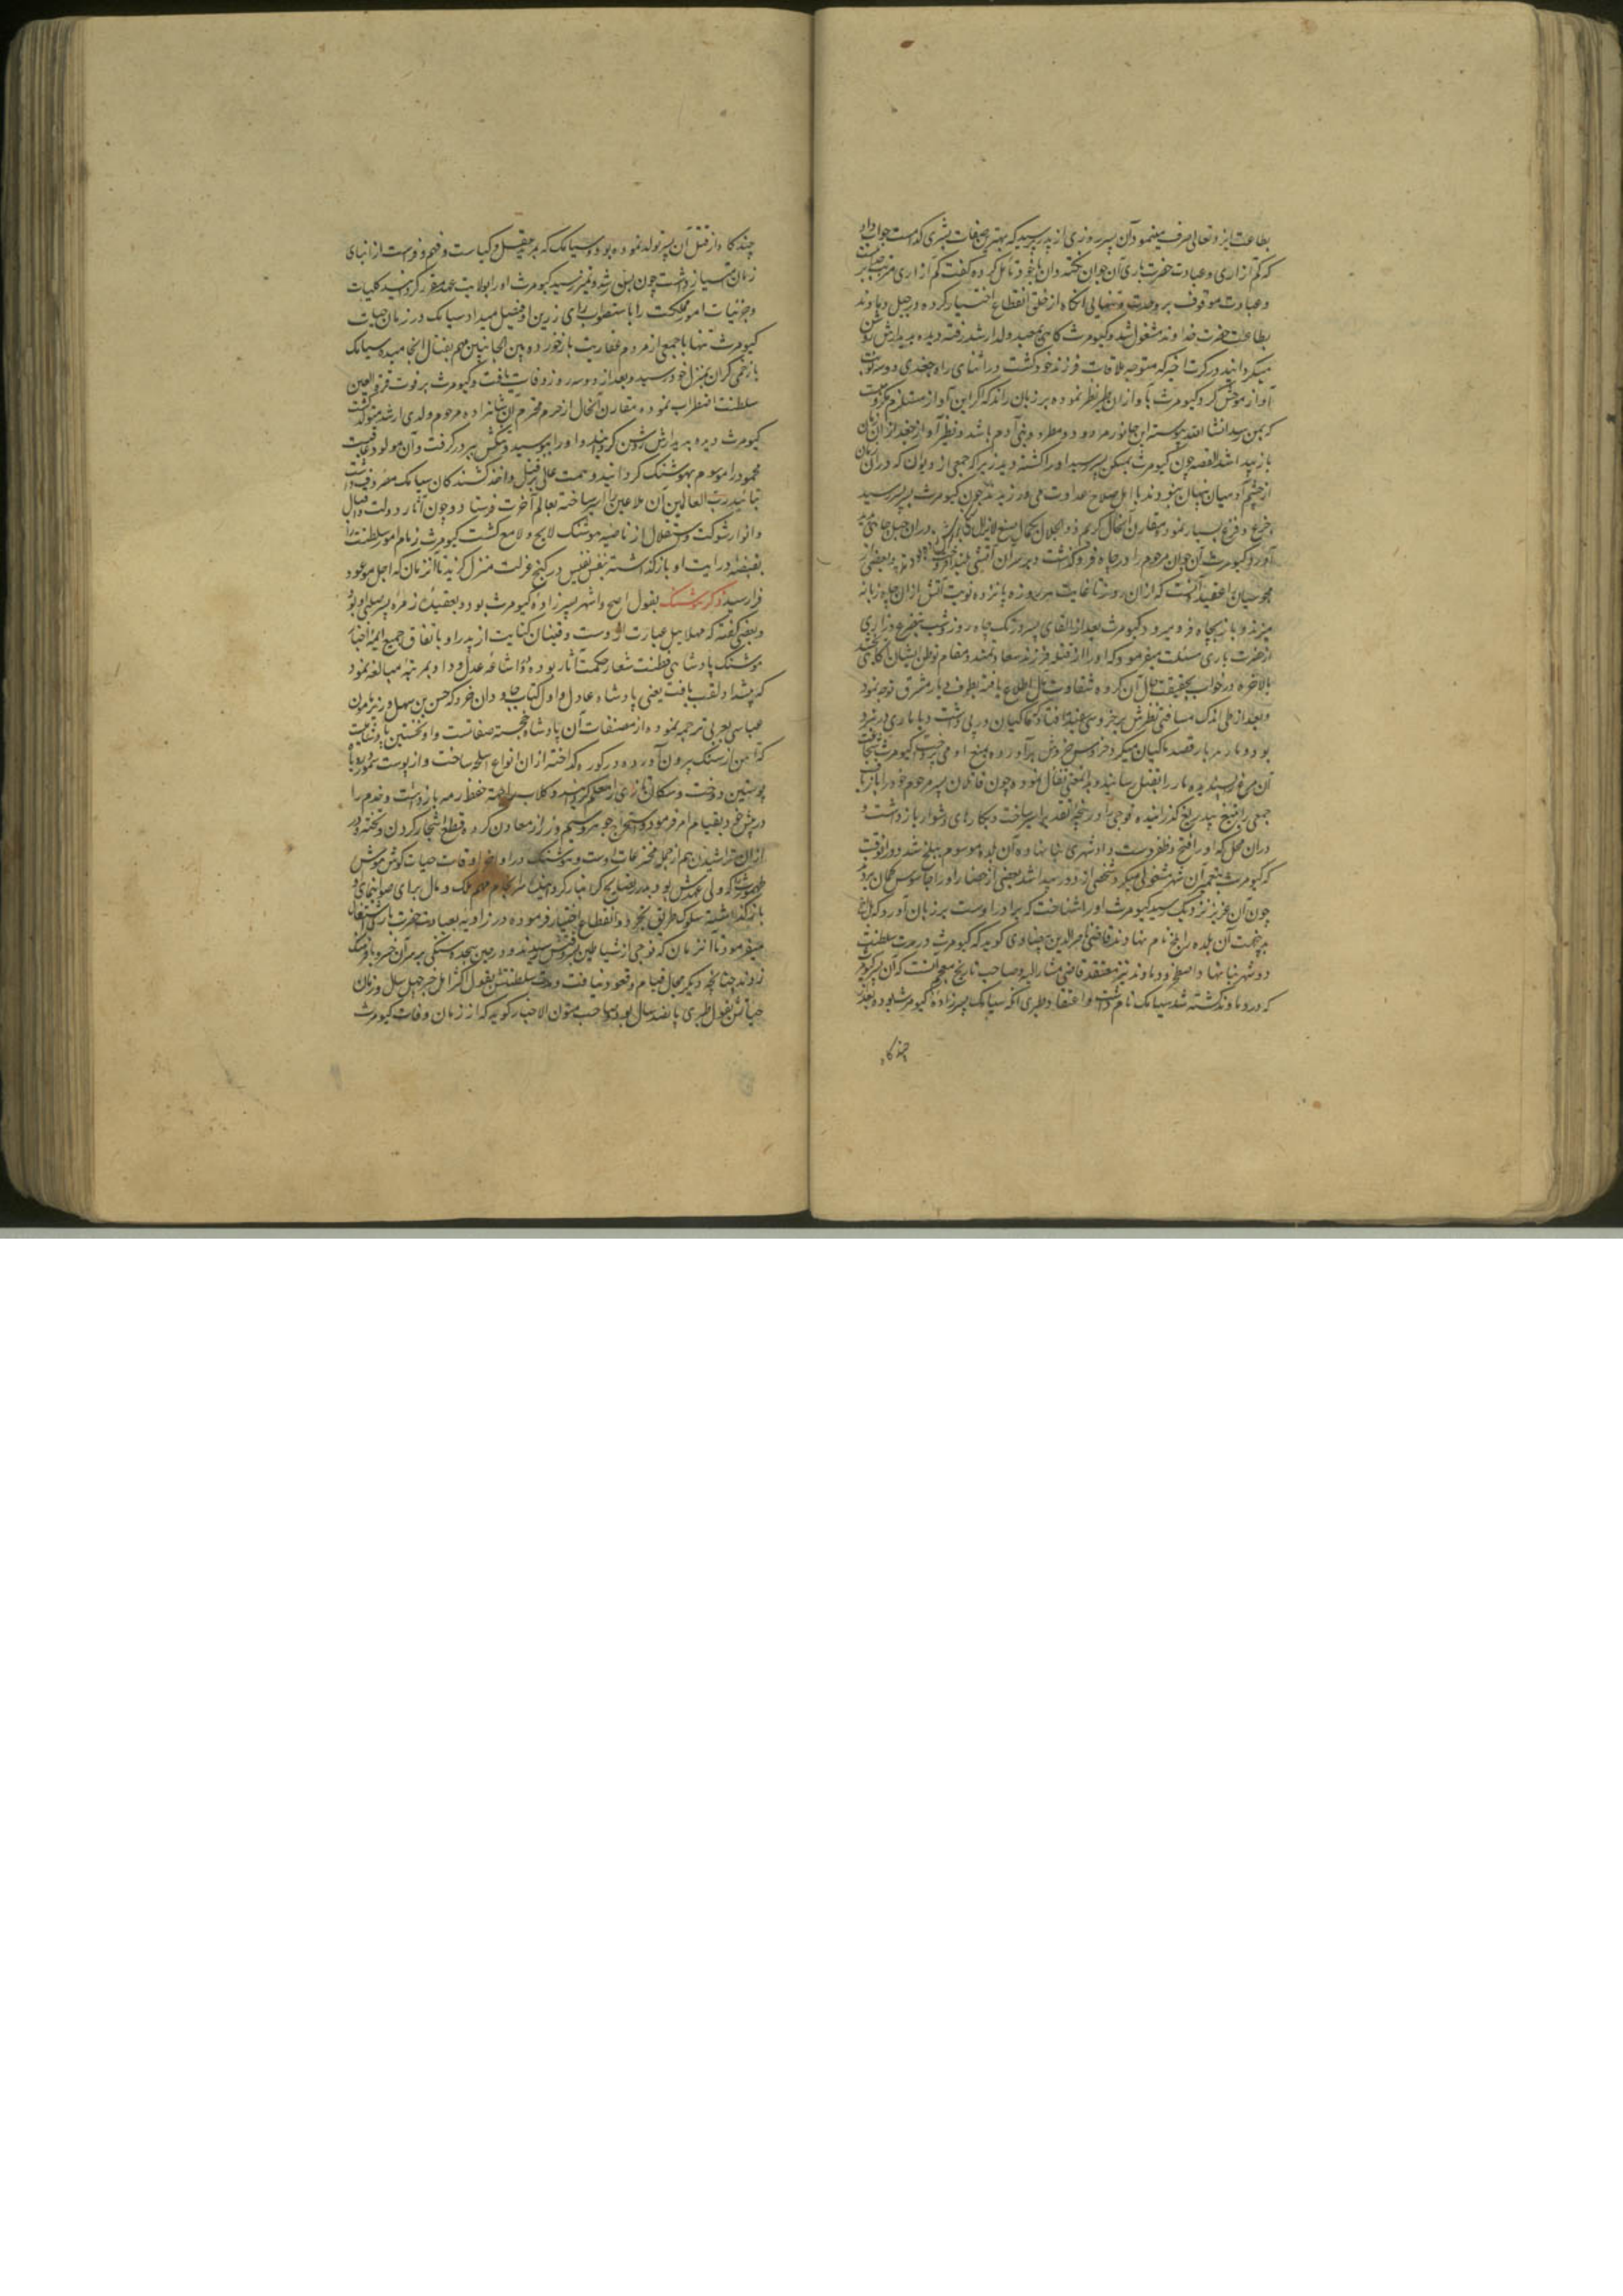 بطاعت ایزد تعالی صرف مینمود آن پسر روزی از پدر پرسید که بهترین صفات بشری کدامست جواب داد
که کم آزاری و عبادت حضرت باری آن جوان نکته دان با خود تأمل کرده گفت کم آزاری
و عبادت موقوف بر وحدت و تنهایی آنگاه از خلق انقطاع اختیار کرده در جبل دماوند
بطاعت حضرت خداوند مشغول شد و کیومرث کاهی بصید ولد ارشد رفته دیده بدیدارش روشن
میکردانید در کرت اخیر که متوجه ملاقات فرزند خود کشت در اثنای راه جغدی دو سه نوبت
آواز موحش کرد و کیومرث بر زبان راند که اگر این آواز مستلزم
باز پیدا شد القصه چون کیومرث بمسکن پسر رسید او را کشته دید زیرا که جمعی از دیوان که در آن زمان
از چشم آدمیان پنهان نبودند با اهل صلاح عداوت می ورزیدند چون کیومرث بسر پسر رسید
جزع و فزع بسیار نمود و مقارن آنحال کریم ذو الجلال بکمال صنع لایزال در آن جبل چاهی پدید
آورد و کیومرث آن جوان مرحوم را در چاه فرو گذاشت و بر سر آن آتشی بلند افروخت
مجوسیان اعتقید آنست که از آن روز تا غایت هر روزه پانزده نوبت آتش از آن چاه زبانه
میزند و باز بچاه فرو میرود کیومرث بعد از القای پسر روز و شب بتضرع و زاری
از حضرت باری مسئلت میفرمود که او را از قتله فرزند سعادتمند و مقام توطن ایشان آگاهی بخشد
بالاخره در خواب بحقیقت حال آن گروه شقاوت مآل اطلاع یافته بطرف دیار مشرق توجه نمود
و بعد از طی اندک مسافتی نظرش بر خروسی سفید افتاد که ماکیان در پی داشت و با ماری در نبرد
بود و مار هر بار قصد ماکیان میکرد خروس خروش برآورده بمنع او می
آن مرغ پسندیده مار را بقتل رسانید و بدانمعنی تفأل نموده چون قاتلان پسر مرحوم خود را باز یافت
جمعی را به تیغ بیدریغ گذرانیده فوجی را اسیر ساخت و بکارهای دشوار باز داشت و
در آن محل که او را فتح و ظفر دست داد شهری بنا نهاد و آن بلده موسوم ببلخ شد و در آن وقت
که کیومرث بتعمیر آن شهر مشغولی میکرد شخصی از دور پیدا شد بعضی از حضار او را جاسوس گمان بردند
چون آن عزیز نزدیک رسید کیومرث او را شناخت که برادر اوست بر زبان آورد که بل اخ
بدینجهت آن بلده را بلخ نام نهادند قاضی ناصر الدین بیضاوی گوید که کیومرث در مدت سلطنت
دو شهر بنا نهاد اصطخر و دماوند نیز معتقد قاضی مشار الیه و صاحب تاریخ معجم آنست که آن پسر کیومرث
که در دماوند کشته شد سیامک نام داشت و اعتقاد طبری آنکه سیامک پسرزاده کیومرث بوده بعد
چندگاه
چندگاه از قتل آن پسر تولد نموده بود و سیامک که بمزید عقل و کیاست و فهم و فراست از ابنای
زمان امتیاز داشت چون بسن رشد و تمیز رسید کیومرث او را بولایت عهد مقرر کردانید کلیات
و جزئیات امور مملکت را باستصواب رای زرین او فیصل میداد سیامک در زمان حیات
کیومرث تنها با جمعی از مردم عفاریت باز خورد و بین الجانبین مهم بقتال انجامیده سیامک
با زخمی گران بمنزل خود رسید و بعد از دو سه روز وفات یافت و کیومرث بر فوت قرة العین
سلطنت اضطراب نموده مقارن آنحال از حرم محترم آن شاهزاده مرحوم ولدی ارشد متولد گشت
کیومرث دیده بدیدارش روشن گردانید و او را ببوسید و تنگش ببر در گرفت و آن مولود عاقبت
محمود را موسوم بهوشنگ گردانید و همت عالی بر قتل و اخذ کشندگان سیامک مصروف داشت
بتائید رب العالمین آن ملاعین را اسیر ساخته بعالم آخرت فرستاد و چون آثار دولت و اقبال
و انوار شوکت و استقلال از ناصیه هوشنگ لایح و لامع گشت کیومرث زمام امور سلطنت را
بقبضه درایت او باز گذاشته بنفس نفیس در کنج عزلت منزل گزید تا آنزمان که اجل موعود
فرا رسید ذکر هوشنگ بقول اصح و اشهر پسرزاده کیومرث بود و بعقیده زمره پسر صلبی او بود
و بعضی گفته که مهلاییل عبارت از اوست و قینان کنایت از پدر او باتفاق جمیع ائمه اخبار
هوشنگ پادشاهی فطنت شعار حکمت آثار بوده و در اشاعه عدل و داد بمرتبه مبالغه نمود
که پیشداد لقب یافت یعنی پادشاه عادل اول و کتاب جاودان خرد که حسن بن سهل وزیر مأمون
عباسی بعربی ترجمه نموده از مصنفات آن پادشاه خجسته صفاتست و او نخستین پادشاهیست
که آهن از سنگ بیرون آورده در کوره گداخته از آن انواع اسلحه ساخت و از پوست سمور و روباه
پوستین دوخت و سکان تازی را معلم گردانید و کلاب را جهة حفظ رمه باز داشت و خدم را
در پیش خود بقیام امر فرمود و استخراج جوهر و سیم و زر از معادن کرد و قطع اشجار کردن و تخته و در
از آن تراشیدن هم از جمله مخترعات اوست و هوشنگ در اواخر اوقات حیات گوش هوش
طهمورث که ولی عهدش بود بدرر نصایح گرانبار گردانیده سرانجام مهام ملک و مال برای صوابنمای او
باز گذاشته سلوک طریق تجرد و انقطاع اختیار فرموده در زاویه بعبادت حضرت باری اشتغال
میفرمود تا آنزمان که فوجی از شیاطین بوقتش رسیدند و در حین سجده سنگی بر سر آن خسرو با فرهنگ
زدند چنانچه دیگر مجال قیام و قعود نیافت و مدت سلطنتش بقول اکثر اهل خبر چهل سال و زمان
حیاتش بقول طبری پانصد سال بود و صاحب متون الاخبار گوید که از زمان وفات کیومرث